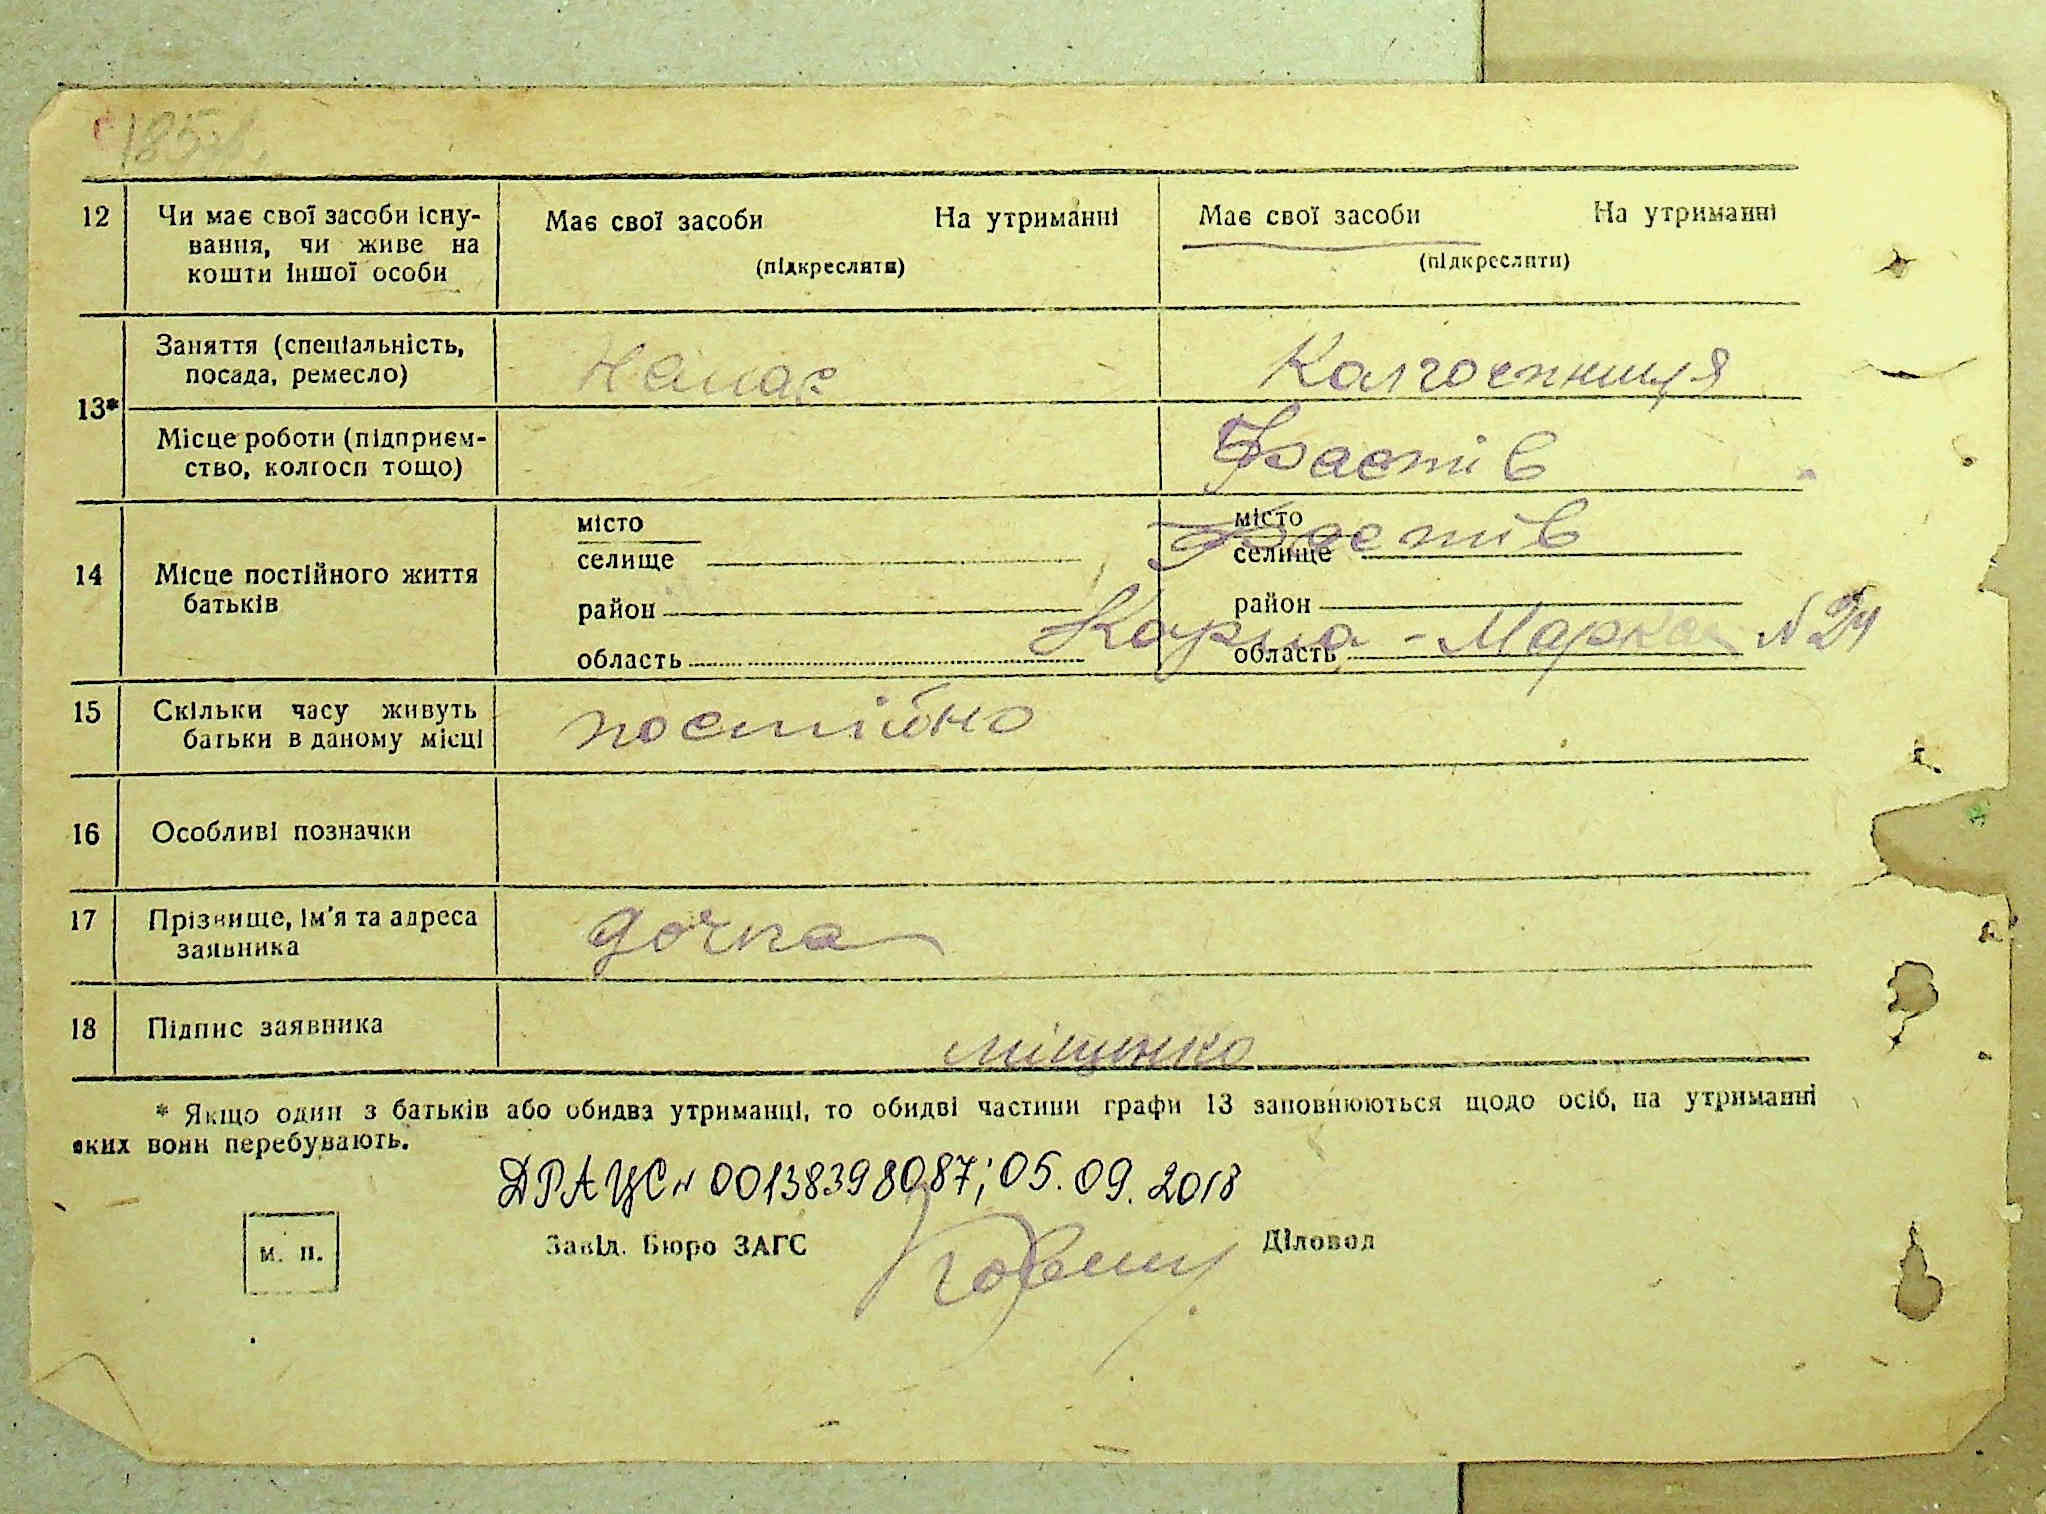 185
12 Чи має свої засоби існу- Має свої засоби На утриманні Має свої засоби На утриманні
вання, чи живе на
кошти іншої особи (підкреслити) (підкреслити)
13* Заняття (спеціальність, Немає Колгоспниця
посада, ремесло)
Місце роботи (підприєм- Фастів
ство, колгосп тощо)
14 Місце постійного життя місто місто Фастів
батьків селище селище
район район
Карла-Маркса N 24
область область
15 Скільки часу живуть постійно
батьки в даному місці
16 Особливі позначки
17 Прізвище, ім'я та адреса дочка
заявника
18 Підпис заявника міщенко
* Якщо один з батьків або обидва утриманці, то обидві частини графи 13 заповнюються щодо осіб, на утриманні
яких вони перебувають.
ДРАЦС N 00138398087; 05.09.2018
м. п. Завід. Бюро ЗАГС Діловод